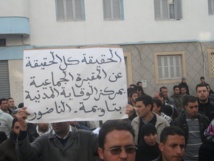 الحقيقة كل الحقيقة
عن المقبرة الجماعية
بمركز الوقاية المدنية
بتاويمة - الناضور